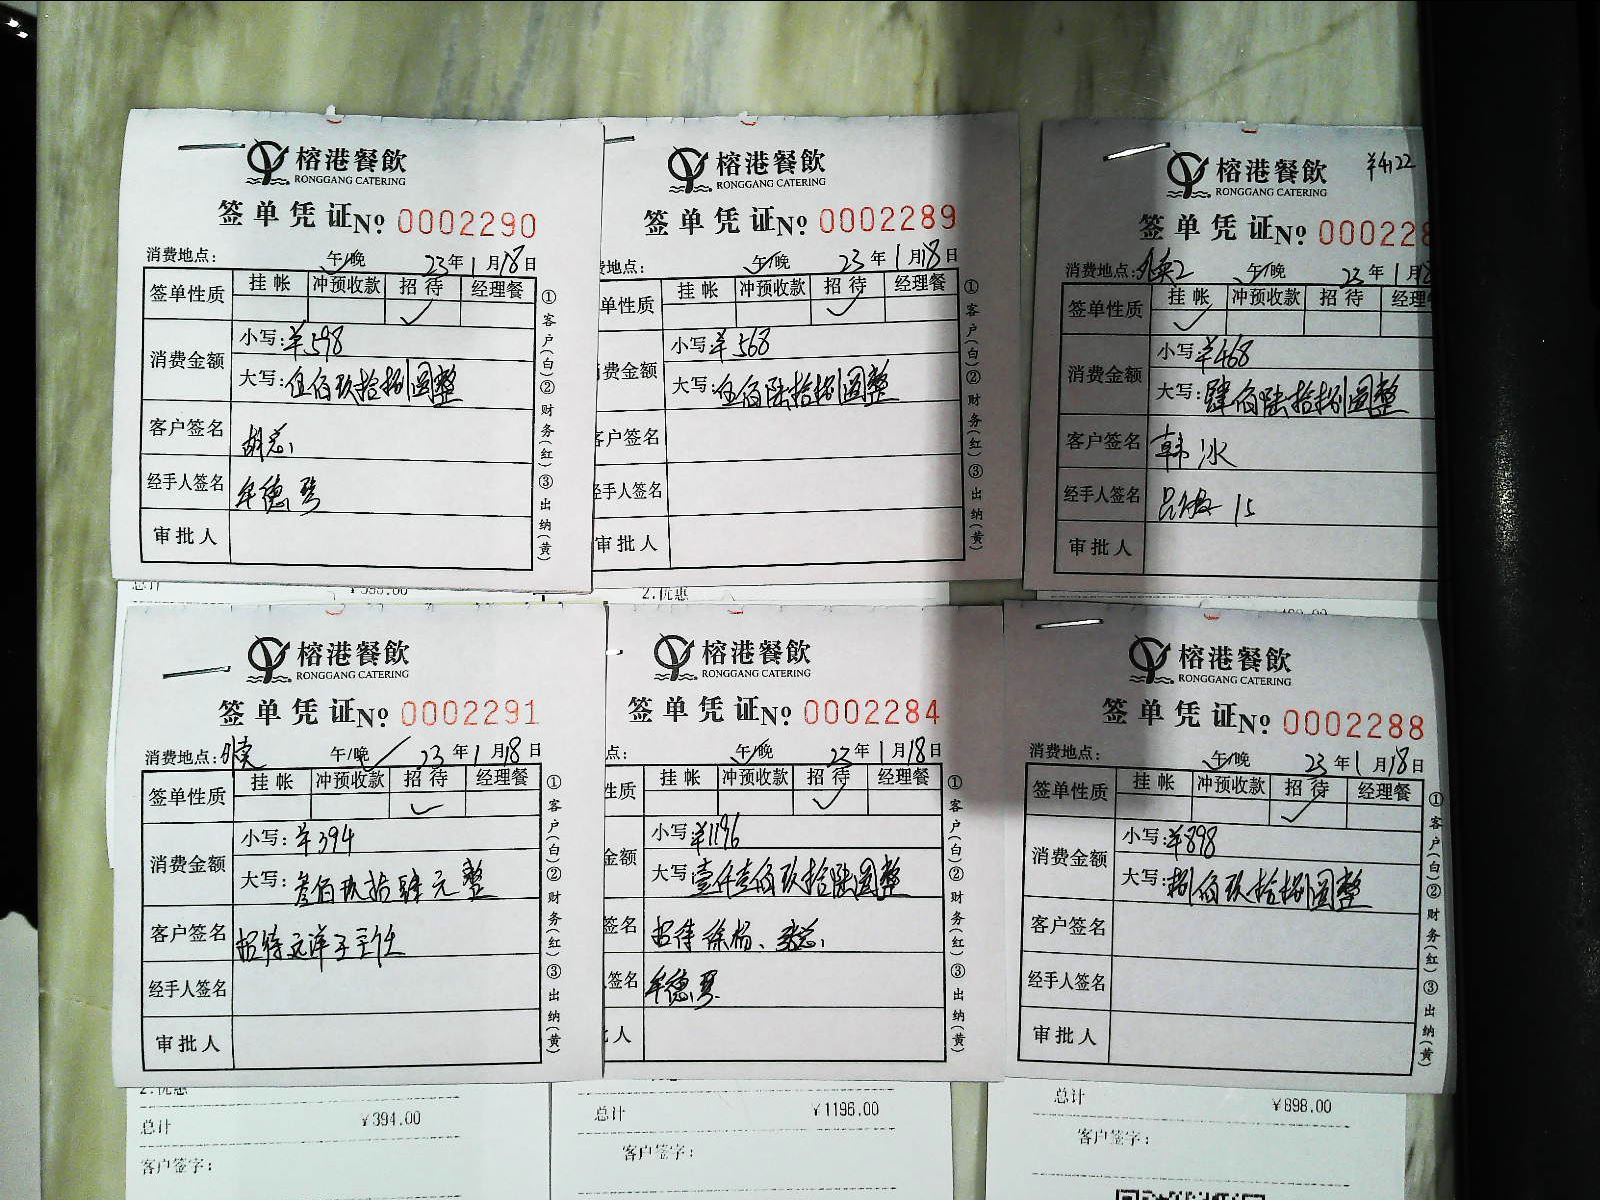 榕港餐飲
RONGGANG CATERING
签单凭证№ 0002290
消费地点: 午/晚 23年1月18日
签单性质 挂帐 冲预收款 招待 经理餐
✓
消费金额 小写:¥598
大写:伍佰玖拾捌圆整
客户签名 胡总
经手人签名 牟德琴
审批人
①客户(白)②财务(红)③出纳(黄)
总计
榕港餐飲
RONGGANG CATERING
签单凭证№ 0002289
费地点: 午/晚 23年1月18日
单性质 挂帐 冲预收款 招待 经理餐
✓
费金额 小写:¥568
大写:伍佰陆拾捌圆整
客户签名
经手人签名
审批人
①客户(白)②财务(红)③出纳(黄)
2.优惠
¥4122
榕港餐飲
RONGGANG CATERING
签单凭证№ 000228
消费地点: 午/晚 23年1月
签单性质 挂帐 冲预收款 招待 经理
✓
消费金额 小写:¥468
大写:肆佰陆拾捌圆整
客户签名 韩冰
经手人签名 15
审批人
榕港餐飲
RONGGANG CATERING
签单凭证№ 0002291
消费地点:外卖 午/晚 23年1月18日
签单性质 挂帐 冲预收款 招待 经理餐
✓
消费金额 小写:¥394
大写:叁佰玖拾肆元整
客户签名 招待远洋于主任
经手人签名
审批人
①客户(白)②财务(红)③出纳(黄)
2.优惠
总计 ¥394.00
客户签字:
榕港餐飲
RONGGANG CATERING
签单凭证№ 0002284
点: 午/晚 23年1月18日
性质 挂帐 冲预收款 招待 经理餐
✓
金额 小写:¥1196
大写:壹仟壹佰玖拾陆圆整
签名 招待徐杨、
签名 牟德琴
人
①客户(白)②财务(红)③出纳(黄)
总计 ¥1196.00
客户签字:
榕港餐飲
RONGGANG CATERING
签单凭证№ 0002288
消费地点: 午/晚 23年1月18日
签单性质 挂帐 冲预收款 招待 经理餐
✓
消费金额 小写:¥898
大写:捌佰玖拾捌圆整
客户签名
经手人签名
审批人
①客户(白)②财务(红)③出纳(黄)
总计 ¥898.00
客户签字: